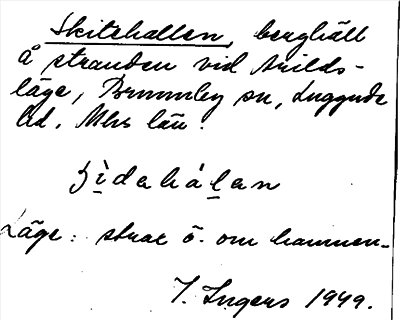 Skitehallen, berghäll
å stranden vid Arilds-
läge, Brunnby sn, Luggude
hd. Mlhs län.
hålan
Läge: strax ö. om hamnen.
I. Ingers 1949.